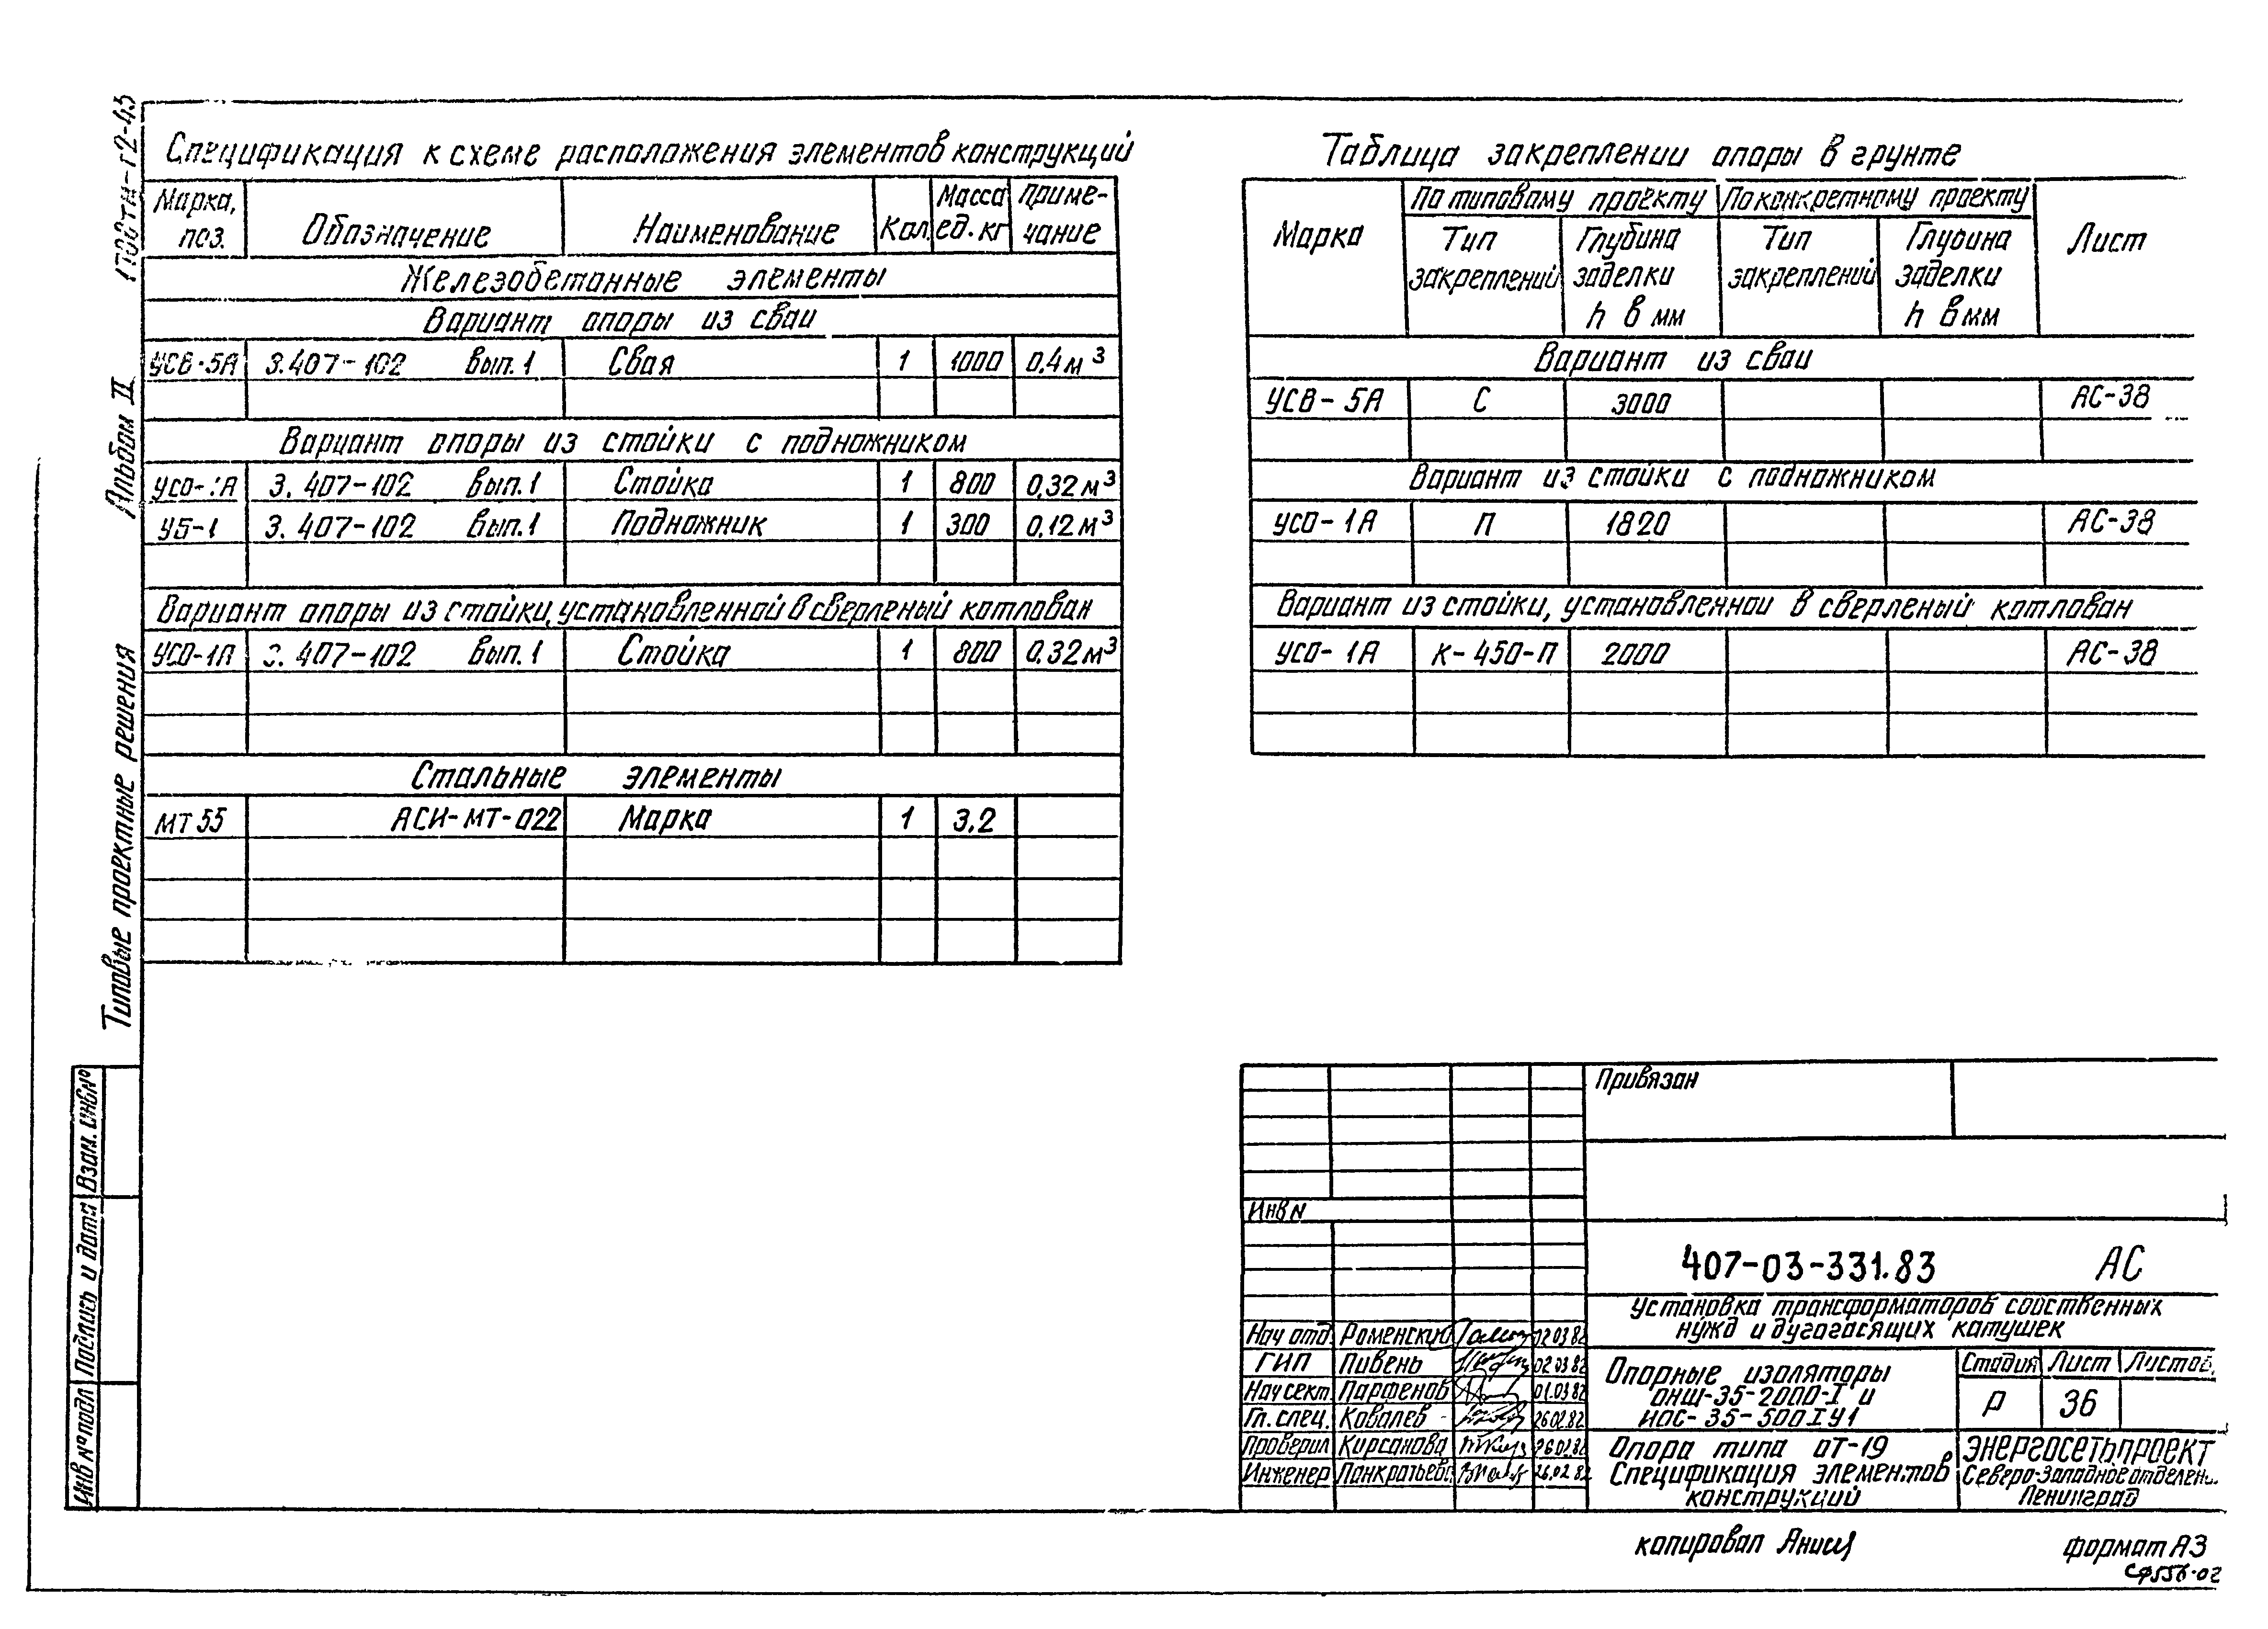 Спецификация к схеме расположения элементов конструкций
Марка, поз. Обозначение Наименование Кол. Масса ед. кг Примечание
Железобетонные элементы
Вариант опоры из сваи
УСВ-5А 3.407-102 вып.1 Свая 1 1000 0,4 м³
Вариант опоры из стойки с подножником
3.407-102 вып.1 Стойка 1 800 0,32 м³
УБ-1 3.407-102 вып.1 Подножник 1 300 0,12 м³
Вариант опоры из стойки, установленной в сверленый котлован
УСО-1А 3.407-102 вып.1 Стойка 1 800 0,32 м³
Стальные элементы
МТ 55 АСИ-МТ-022 Марка 1 3,2
Таблица закреплении опоры в грунте
Марка По типовому проекту По конкретному проекту Лист
Тип закреплений Глубина заделки h в мм Тип закреплений Глубина заделки h в мм
Вариант из сваи
УСВ-5А С 3000 АС-38
Вариант из стойки с подножником
УСО-1А П 1820 АС-38
Вариант из стойки, установленной в сверленый котлован
УСО-1А К-450-П 2000 АС-38
Альбом II
Типовые проектные решения
Взам. инв№
Подпись и дата
Инв№подл
Привязан
Инв N
407-03-331.83 АС
Установка трансформаторов собственных
нужд и дугогасящих катушек
Нач отд. Роменский 02.03.82
ГИП Пивень 02.03.82
Нач сект. Парфенов 01.03.82
Гл. спец. Ковалев 26.02.82
Проверил Кирсанова 26.02.82
Инженер Панкратьева 26.02.82
Опорные изоляторы
ОНШ-35-2000-I и
ИОС-35-500 I У1
Стадия Лист Листов
Р 36
Опора типа ОТ-19
Спецификация элементов
конструкций
ЭНЕРГОСЕТЬПРОЕКТ
Северо-Западное отделени
Ленинград
копировал
формат А3